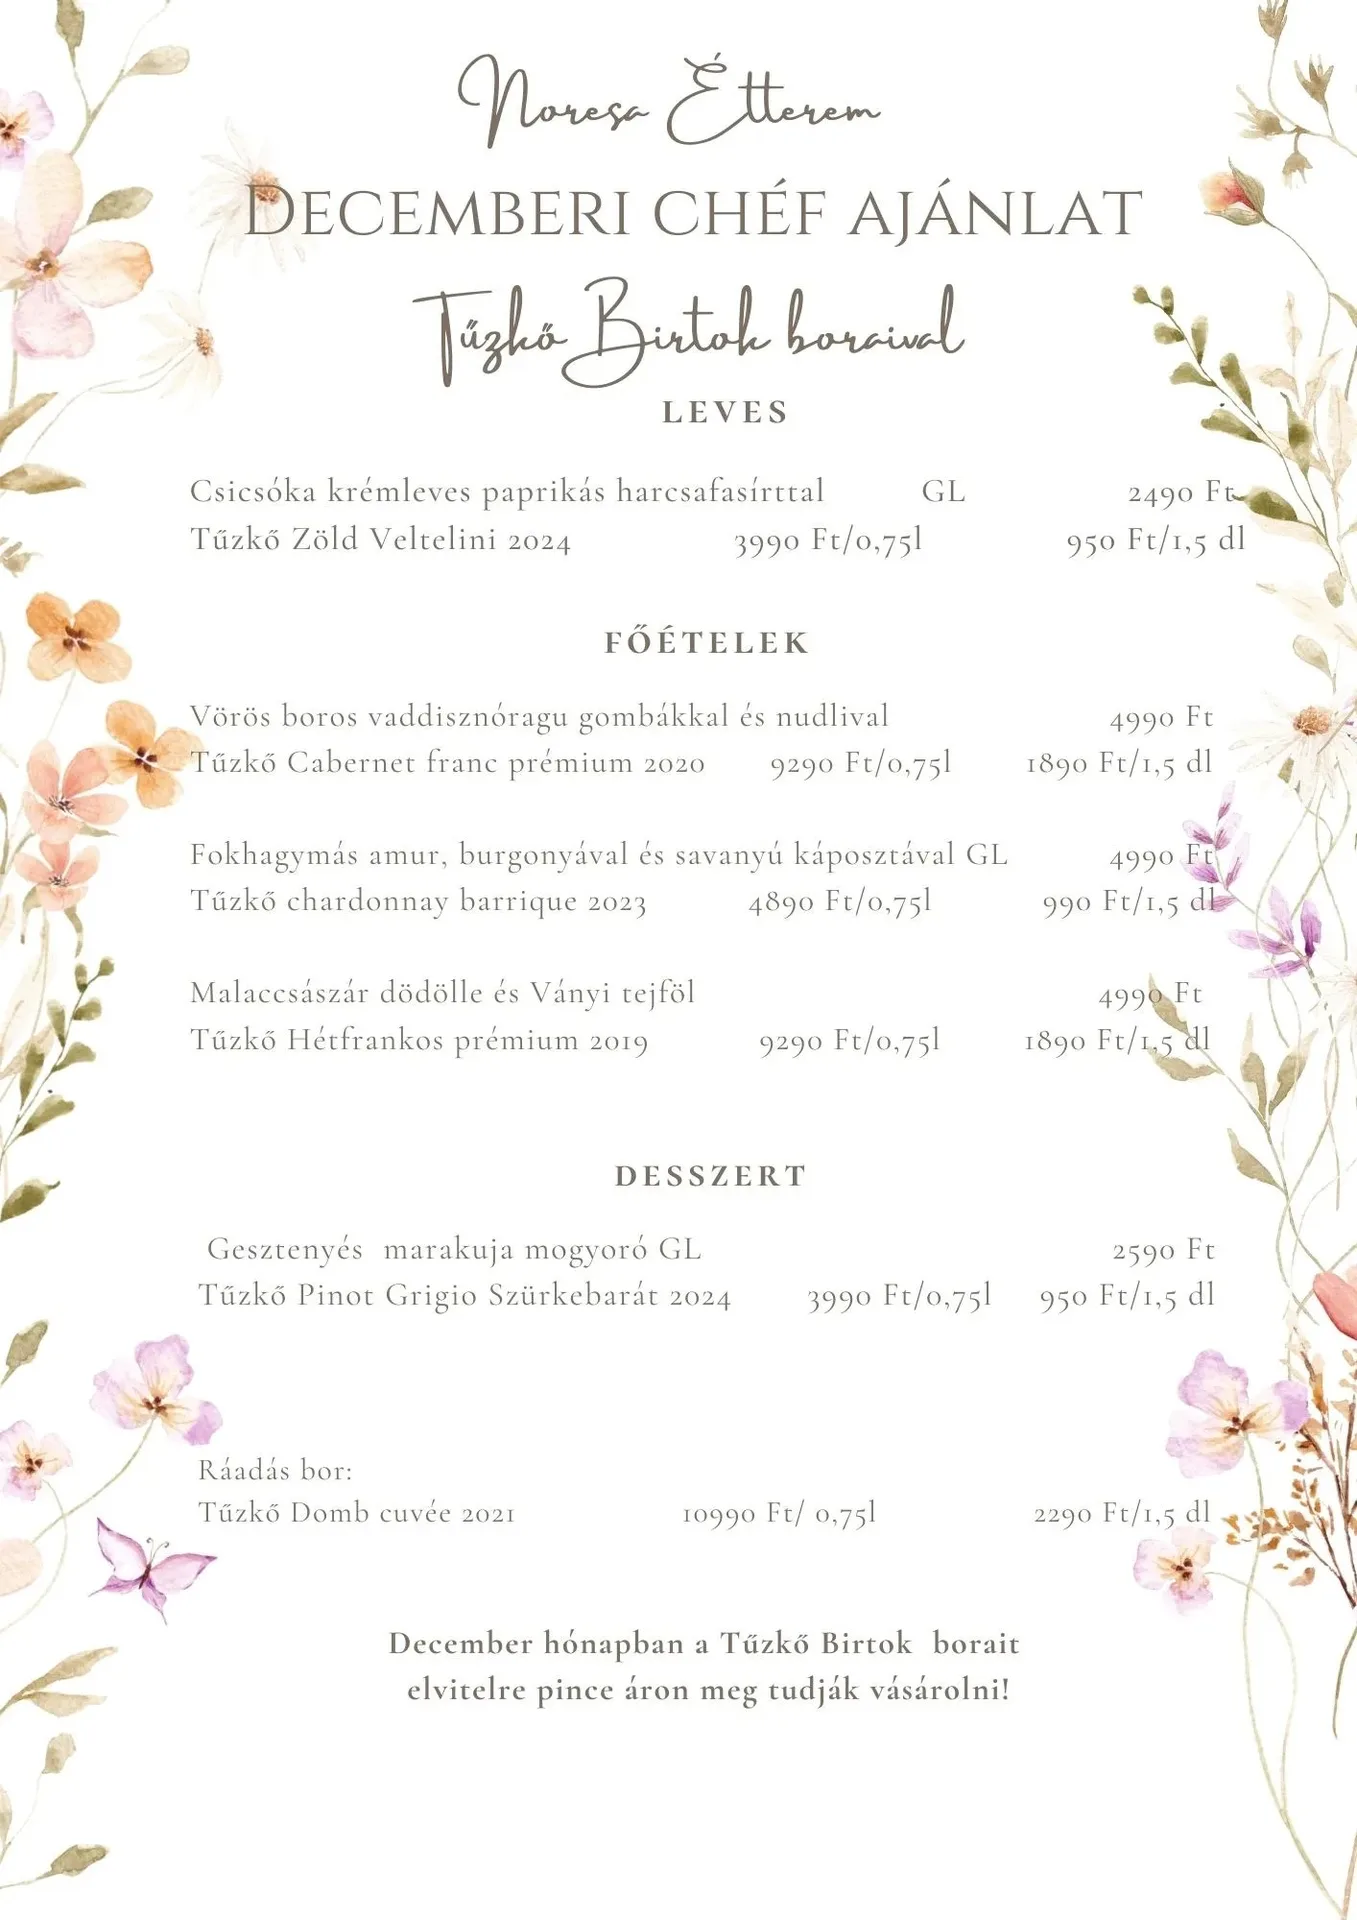 Noresa Étterem
Decemberi chéf ajánlat
Tűzkő Birtok boraival
LEVES
Csicsóka krémleves paprikás harcsafasírttal GL 2490 Ft
Tűzkő Zöld Veltelini 2024 3990 Ft/0,75l 950 Ft/1,5 dl
FŐÉTELEK
Vörös boros vaddisznóragu gombákkal és nudlival 4990 Ft
Tűzkő Cabernet franc prémium 2020 9290 Ft/0,75l 1890 Ft/1,5 dl
Fokhagymás amur, burgonyával és savanyú káposztával GL 4990 Ft
Tűzkő chardonnay barrique 2023 4890 Ft/0,75l 990 Ft/1,5 dl
Malaccsászár dödölle és Ványi tejföl 4990 Ft
Tűzkő Hétfrankos prémium 2019 9290 Ft/0,75l 1890 Ft/1,5 dl
DESSZERT
Gesztenyés marakuja mogyoró GL 2590 Ft
Tűzkő Pinot Grigio Szürkebarát 2024 3990 Ft/0,75l 950 Ft/1,5 dl
Ráadás bor:
Tűzkő Domb cuvée 2021 10990 Ft/ 0,75l 2290 Ft/1,5 dl
December hónapban a Tűzkő Birtok borait
elvitelre pince áron meg tudják vásárolni!